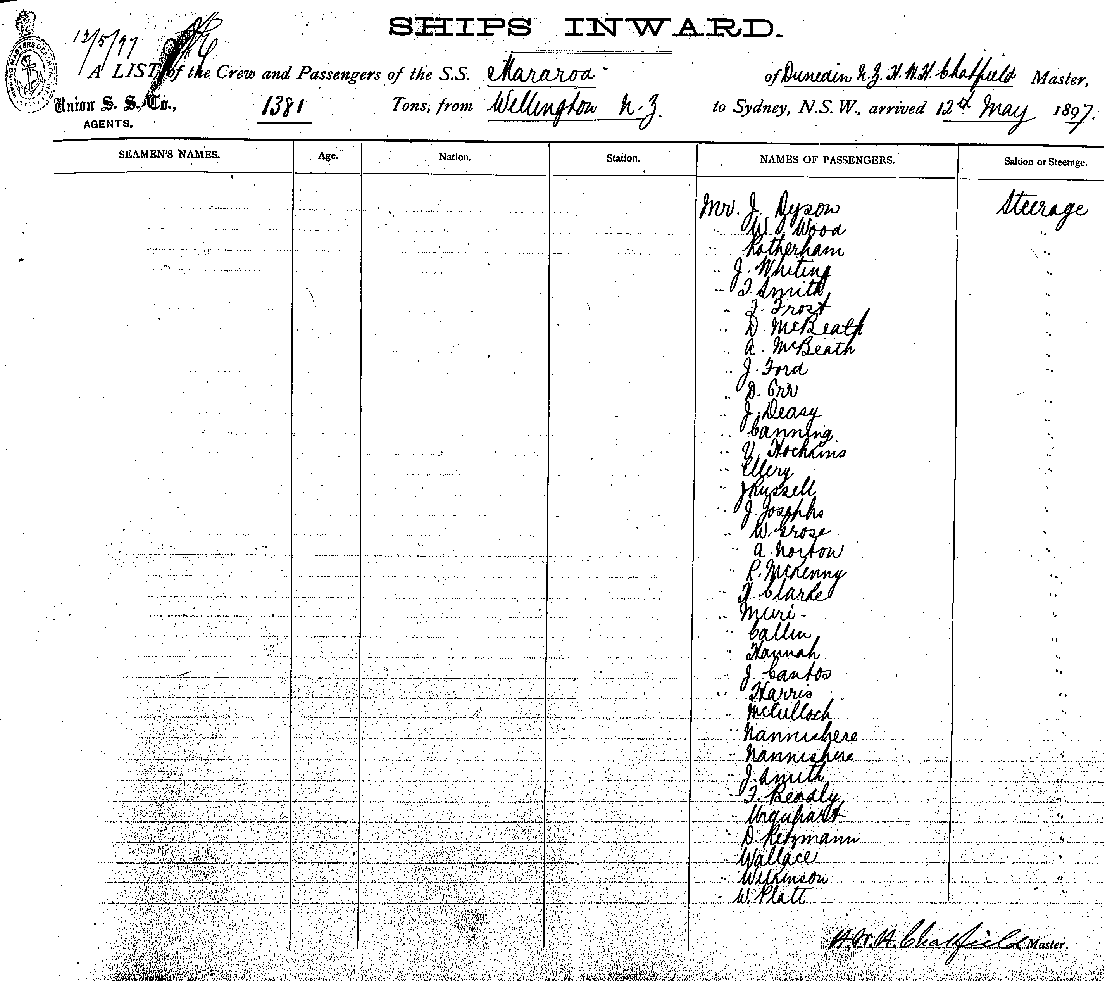 SHIPS INWARD.
13/5/97
A LIST of the Crew and Passengers of the S.S. Mararoa of Dunedin N.Z. H.W.H. Chatfield Master,
Union S. S. Co., 1381 Tons, from Wellington N.Z. to Sydney, N.S.W., arrived 12th May 1897.
AGENTS.
SEAMEN'S NAMES. Age. Nation. Station. NAMES OF PASSENGERS. Saloon or Steerage.
Mr. J. Dyson Steerage
" W. J. Wood "
" Rotherham "
" J. Whiting "
" T. Smith "
" J. Frost "
" D. McBeath "
" A. McBeath "
" J. Ford "
" D. Orr "
" J. Deasy "
" Canning "
" Hockins "
" Ellery "
" J Russell "
" J. Josephs "
" W. Grose "
" A. Norton "
" R. McKenny "
" H. Clarke "
" Muri "
" Callin "
" Hannah "
" J. Cantos "
" Harris "
" McCulloch "
" Nannishere "
" Nannishere "
" J. Smith "
" T. Beadly "
" Urquhart "
" D. "
" Wallace "
" Wilkinson "
" W. Platt "
H.W.H. Chatfield Master.